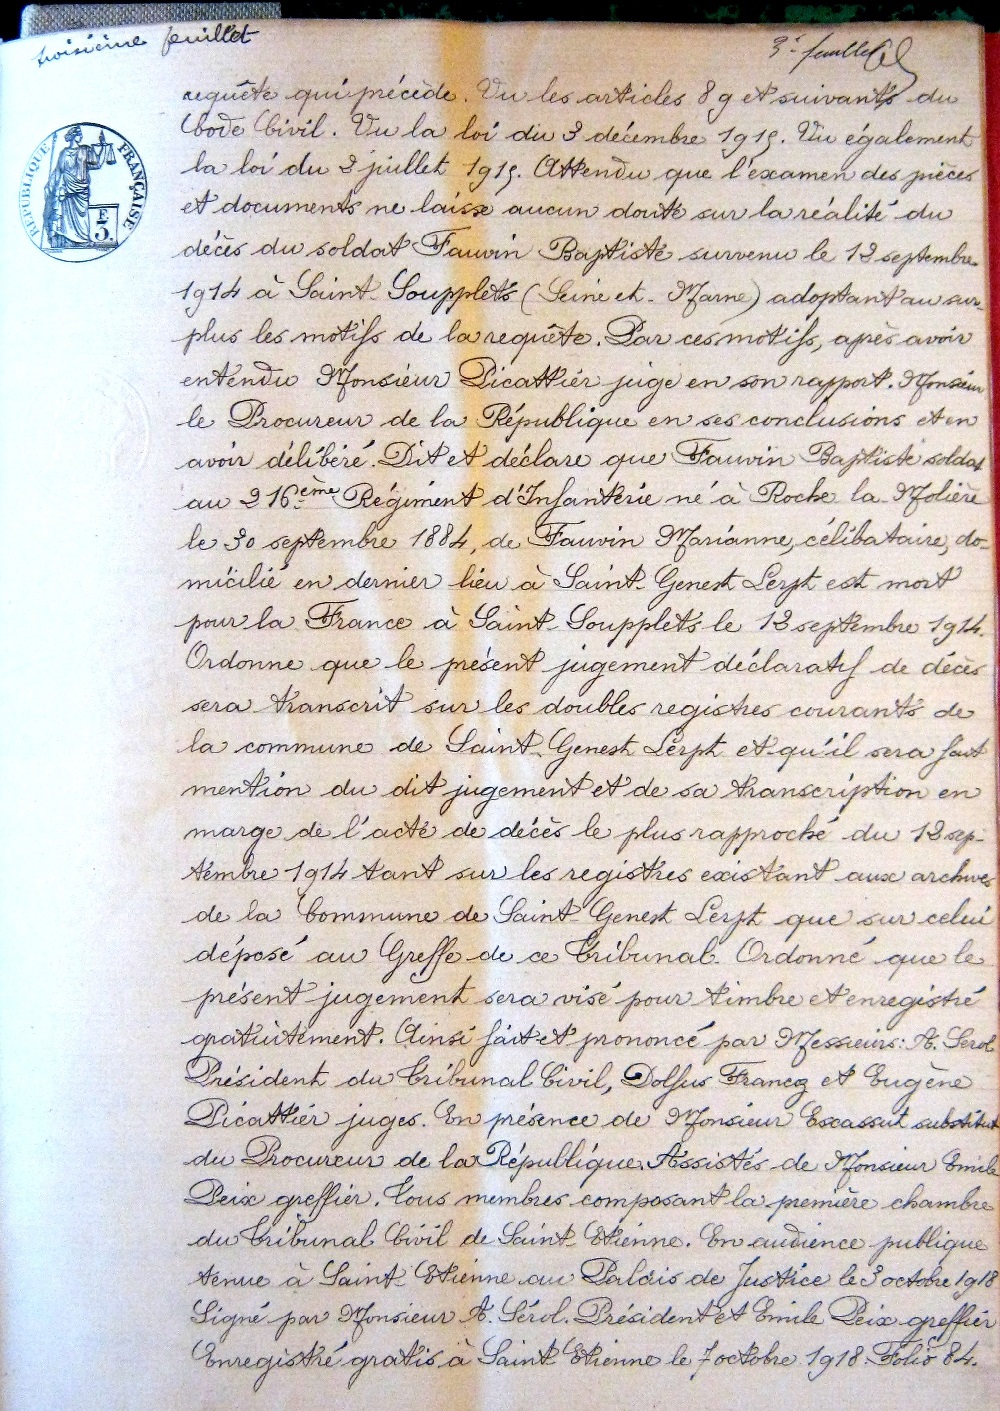 troisième feuillet
3e feuillet
RÉPUBLIQUE FRANÇAISE
F
3.
requête qui précède. Vu les articles 89 et suivants du
Code Civil. Vu la loi du 3 décembre 1915. Vu également
la loi du 2 juillet 1915. Attendu que l'examen des pièces
et documents ne laisse aucun doute sur la réalité du
décès du soldat Fauvin Baptiste survenu le 12 septembre
1914 à Saint-Soupplets (Seine et-Marne) adoptant au sur-
plus les motifs de la requête. Par ces motifs, après avoir
entendu Monsieur Picattier juge en son rapport. Monsieur
le Procureur de la République en ses conclusions et en
avoir délibéré. Dit et déclare que Fauvin Baptiste soldat
au 216ème Régiment d'Infanterie né à Roche la Molière
le 30 septembre 1884, de Fauvin Marianne, célibataire, do-
micilié en dernier lieu à Saint-Genest Lerpt est mort
pour la France à Saint-Soupplets le 12 septembre 1914.
Ordonne que le présent jugement déclaratif de décès
sera transcrit sur les doubles registres courants de
la commune de Saint-Genest Lerpt et qu'il sera fait
mention du dit jugement et de sa transcription en
marge de l'acte de décès le plus rapproché du 12 sep-
tembre 1914 tant sur les registres existant aux archives
de la Commune de Saint-Genest Lerpt que sur celui
déposé au Greffe de ce Tribunal. Ordonné que le
présent jugement sera visé pour timbre et enregistré
gratuitement. Ainsi fait et prononcé par Messieurs: A. Sérol
Président du Tribunal Civil, Dolfus Francoz et Eugène
Picattier juges. En présence de Monsieur Escassut substitut
du Procureur de la République. Assistés de Monsieur Emile
Peix greffier. Tous membres composant la première chambre
du Tribunal Civil de Saint-Etienne. En audience publique
tenue à Saint-Etienne au Palais de Justice le 3 octobre 1918
Signé par Monsieur A. Sérol. Président et Emile Peix greffier
Enregistré gratis à Saint-Etienne le 7 octobre 1918. Folio 84.